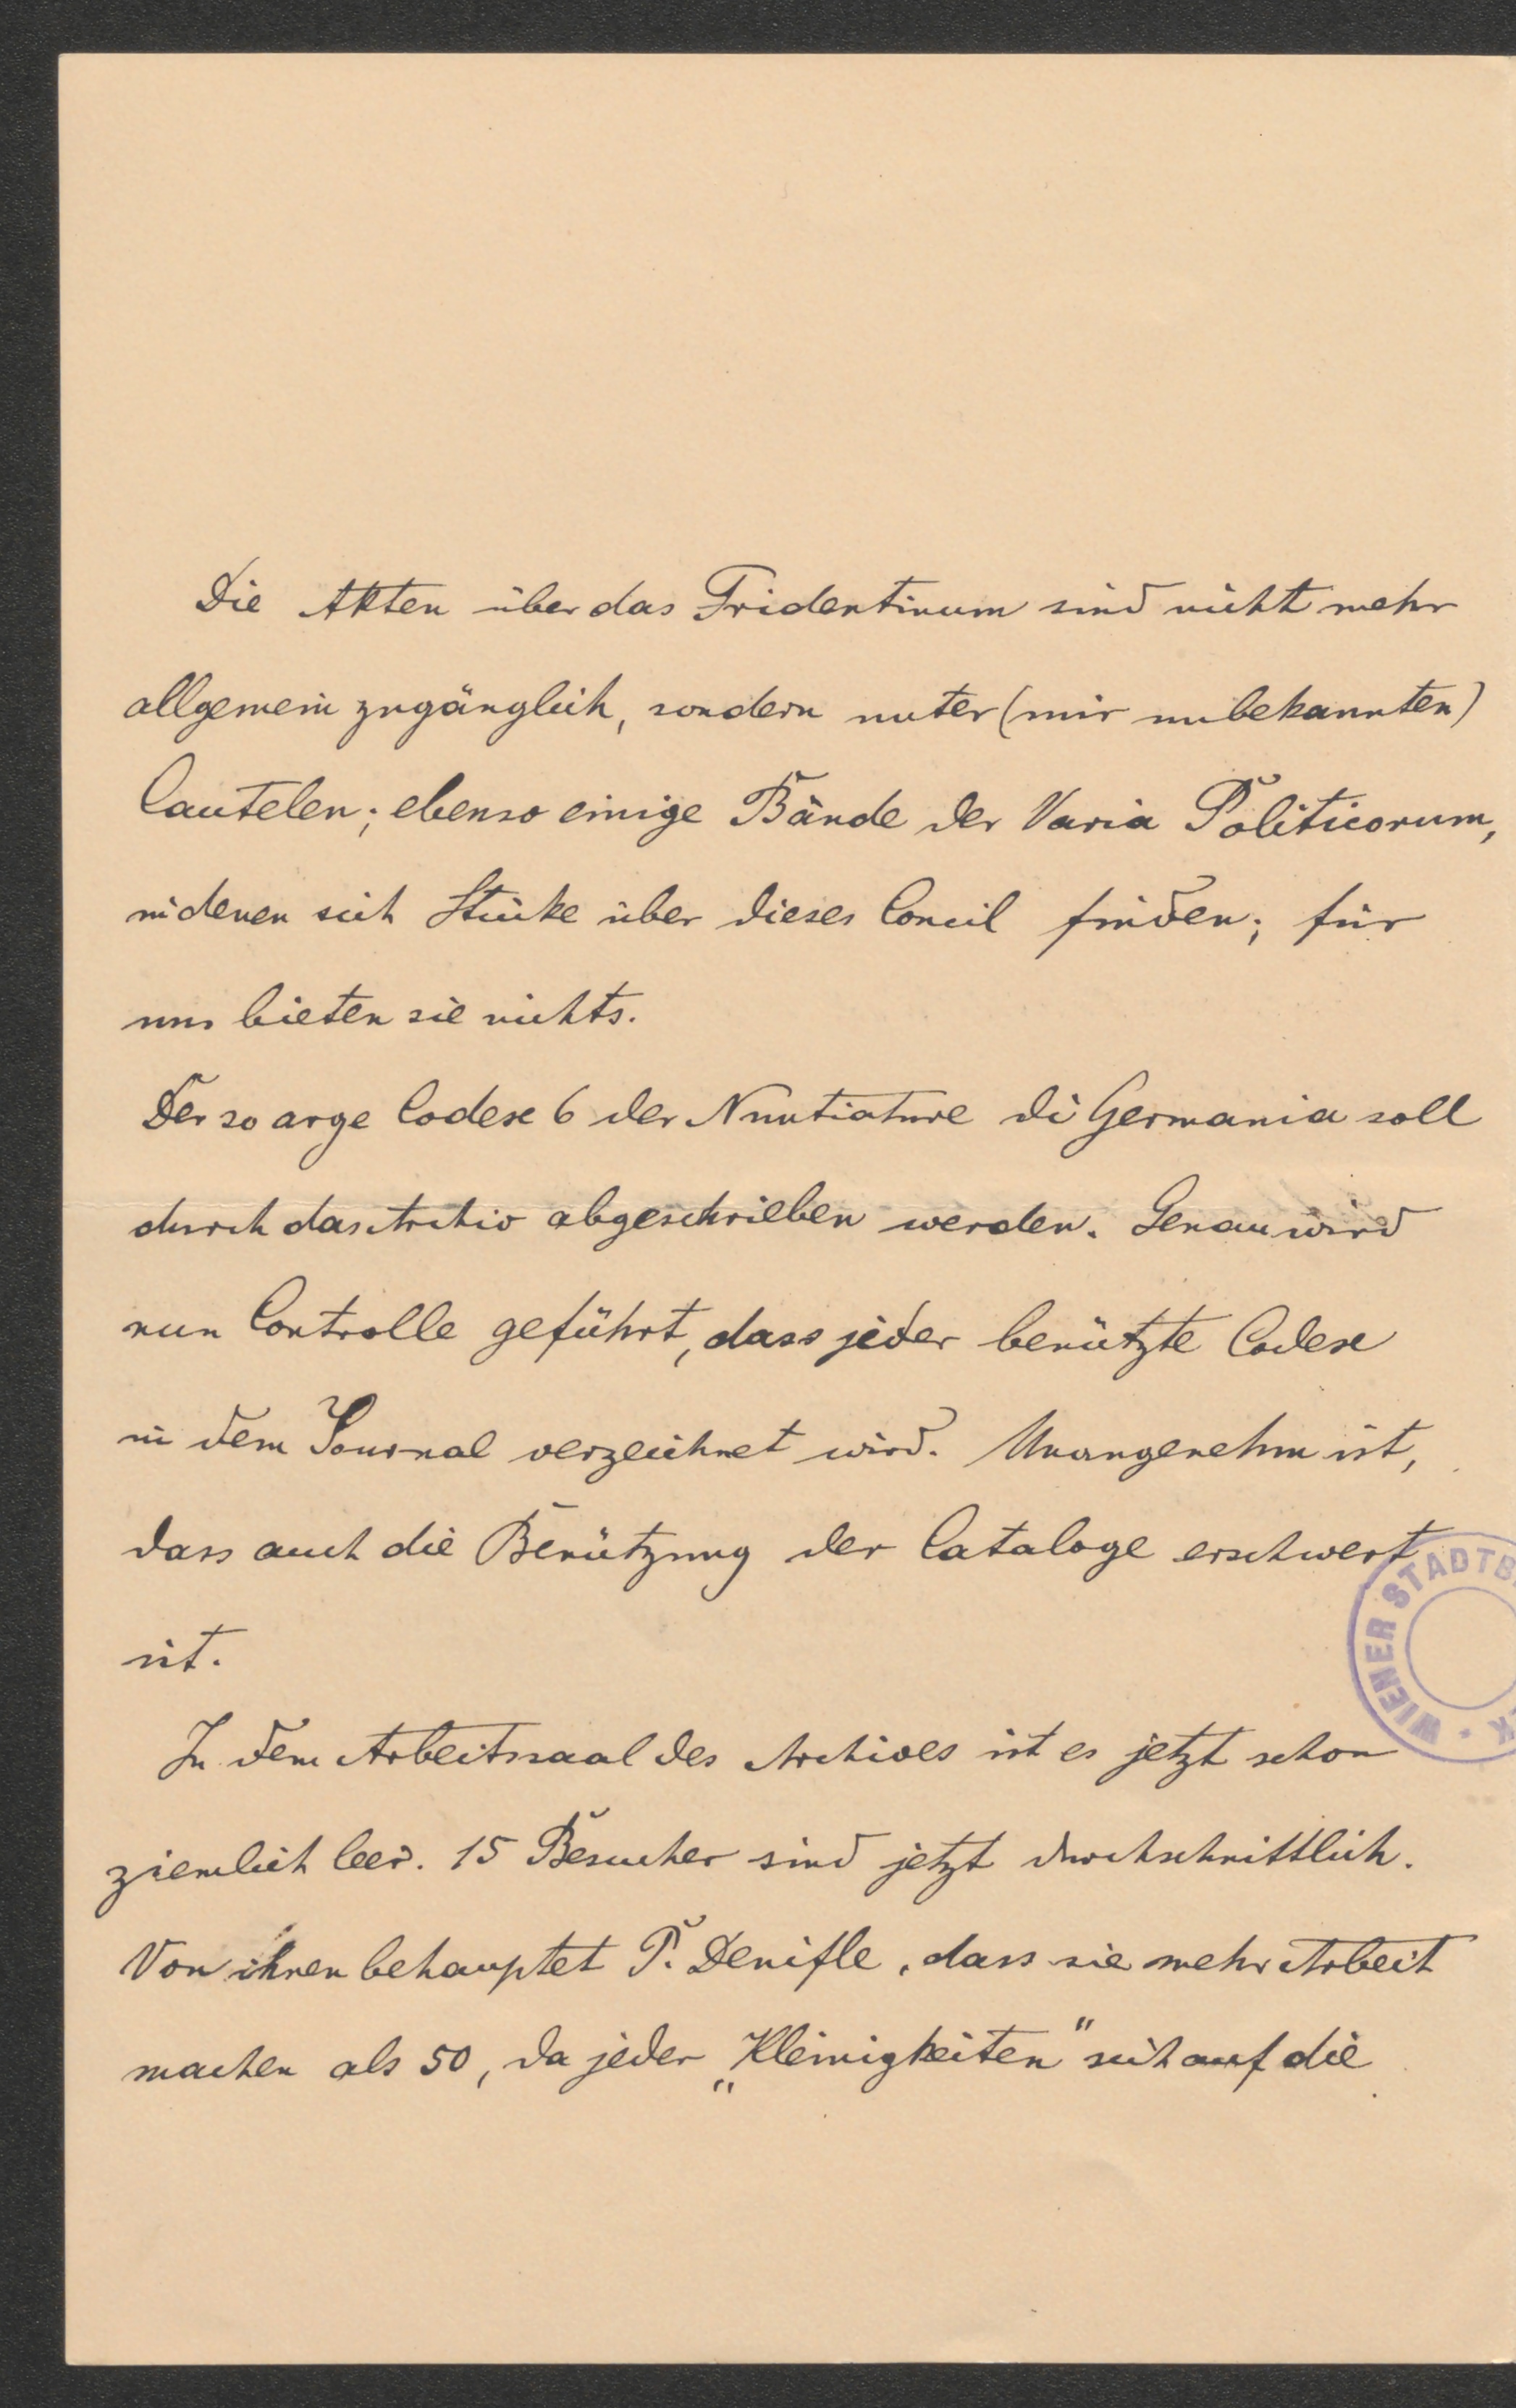 Die Akten über das Tridentinum sind nicht mehr
allgemein zugänglich, sondern unter (mir unbekannten)
Cautelen; ebenso einige Bände der Varia Politicorum,
in denen sich Stücke über dieses Concil finden; für
uns bieten sie nichts.
Der so arge Codex 6 der Nuntiature di Germania soll
durch das Archiv abgeschrieben werden. Genau wird
nun Controlle geführt, dass jeder benützte Codex
in dem Journal verzeichnet wird. Unangenehm ist,
dass auch die Benützung der Cataloge erschwert
ist.
In dem Arbeitssaal des Archives ist es jetzt schon
ziemlich leer. 15 Besucher sind jetzt durchschnittlich.
Von ihnen behauptet P. Denifle, dass sie mehr Arbeit
machen als 50, da jeder „Kleinigkeiten" sich auf die
WIENER STADTB